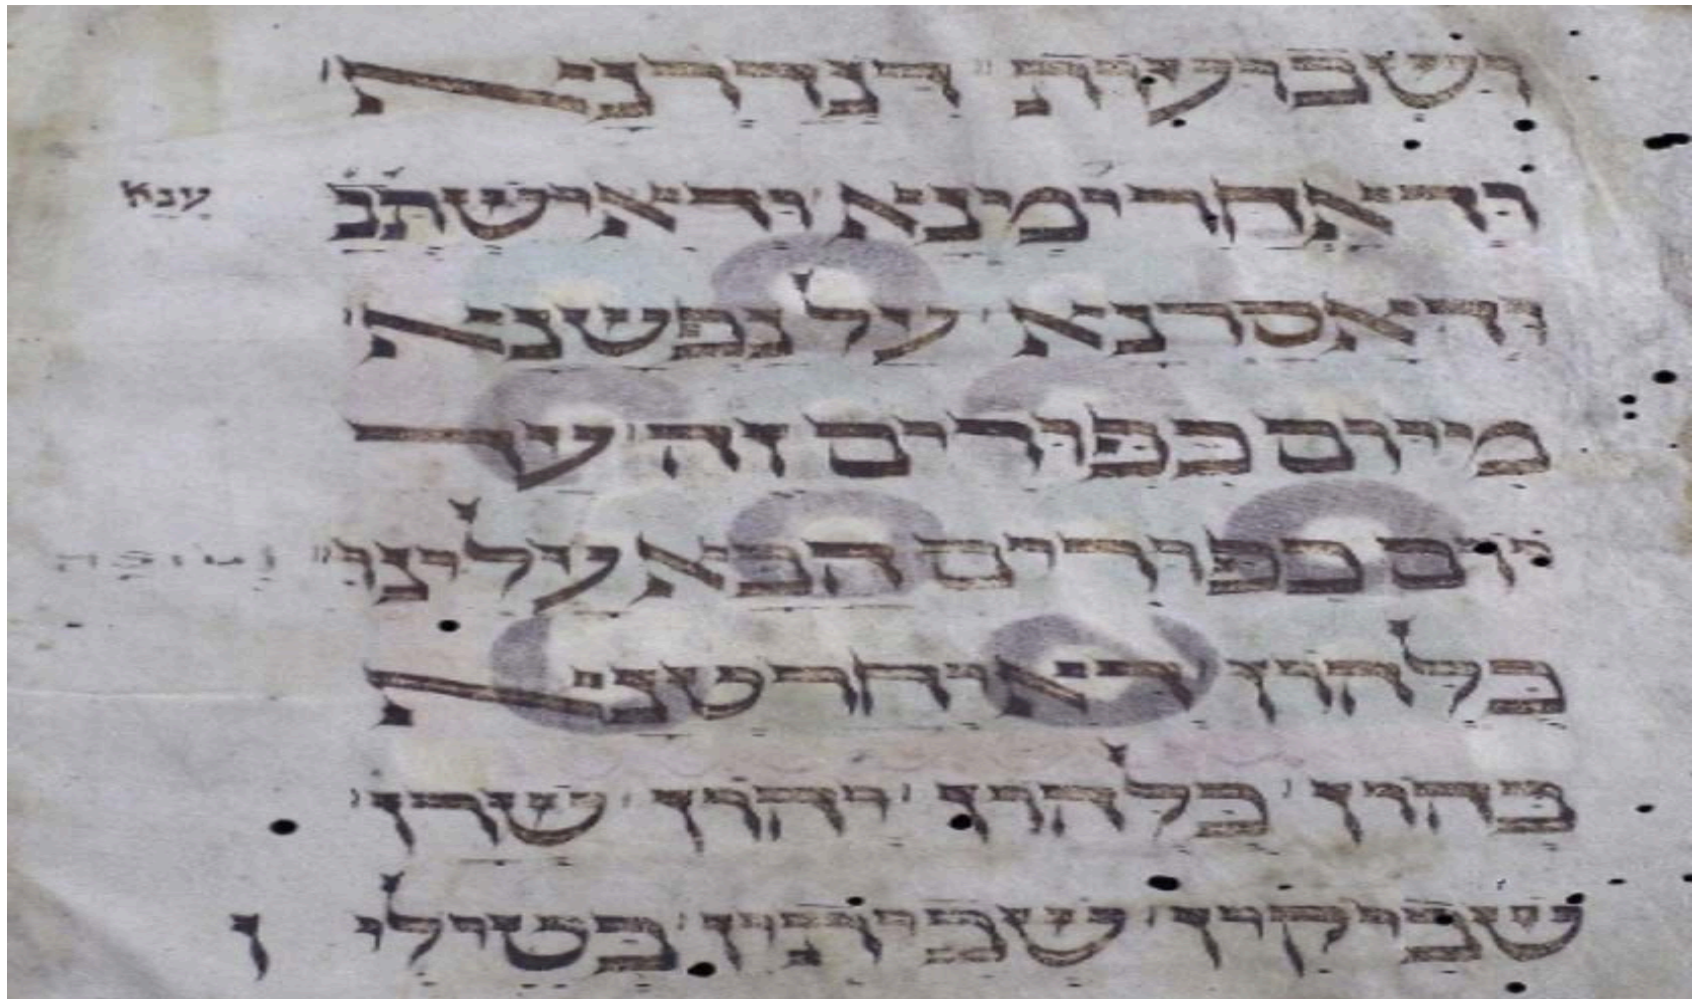 ושבועות דנדרנא
ודאחרימנא ודאישתב ענא
ודאסרנא על נפשנא
מיום כפורים זה עד
יום כפורים הבא עלינו
כלהון דאיחרטנא
בהון כלהון יהון שרין
שביקין שביתין בטילין